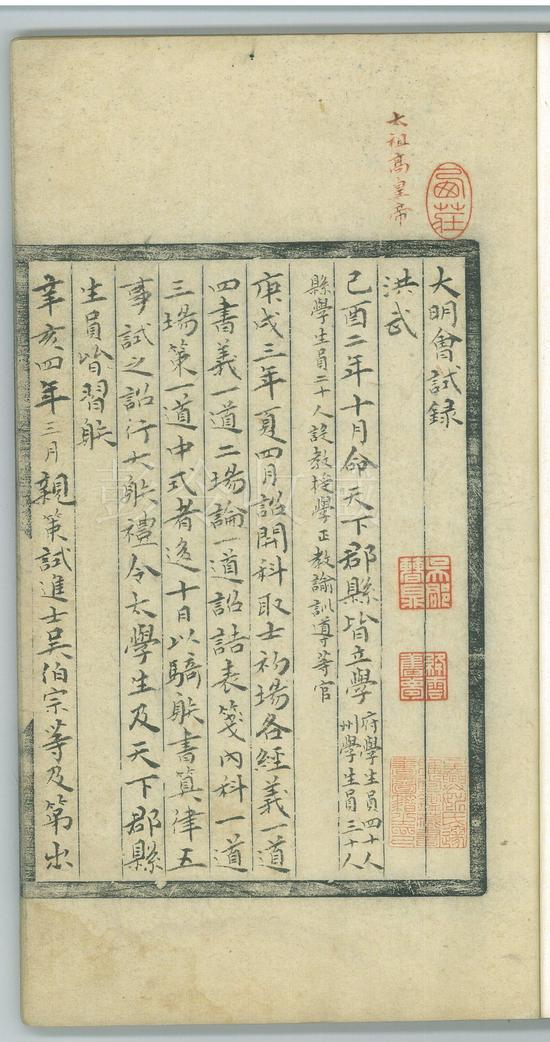 太祖高皇帝
大明會試錄
洪武
己酉二年十月命天下郡縣皆立學府學生員四十人州學生員三十人
縣學生員二十人設教授學正教諭訓導等官
庚戌三年夏四月詔開科取士初場各經義一道
四書義一道二場論一道詔誥表箋內科一道
三場第一道中式者後十日以騎射書算律五
事試之詔行大射禮令太學生及天下郡縣
生員皆習射
辛亥四年三月親策試進士吳伯宗等及第出